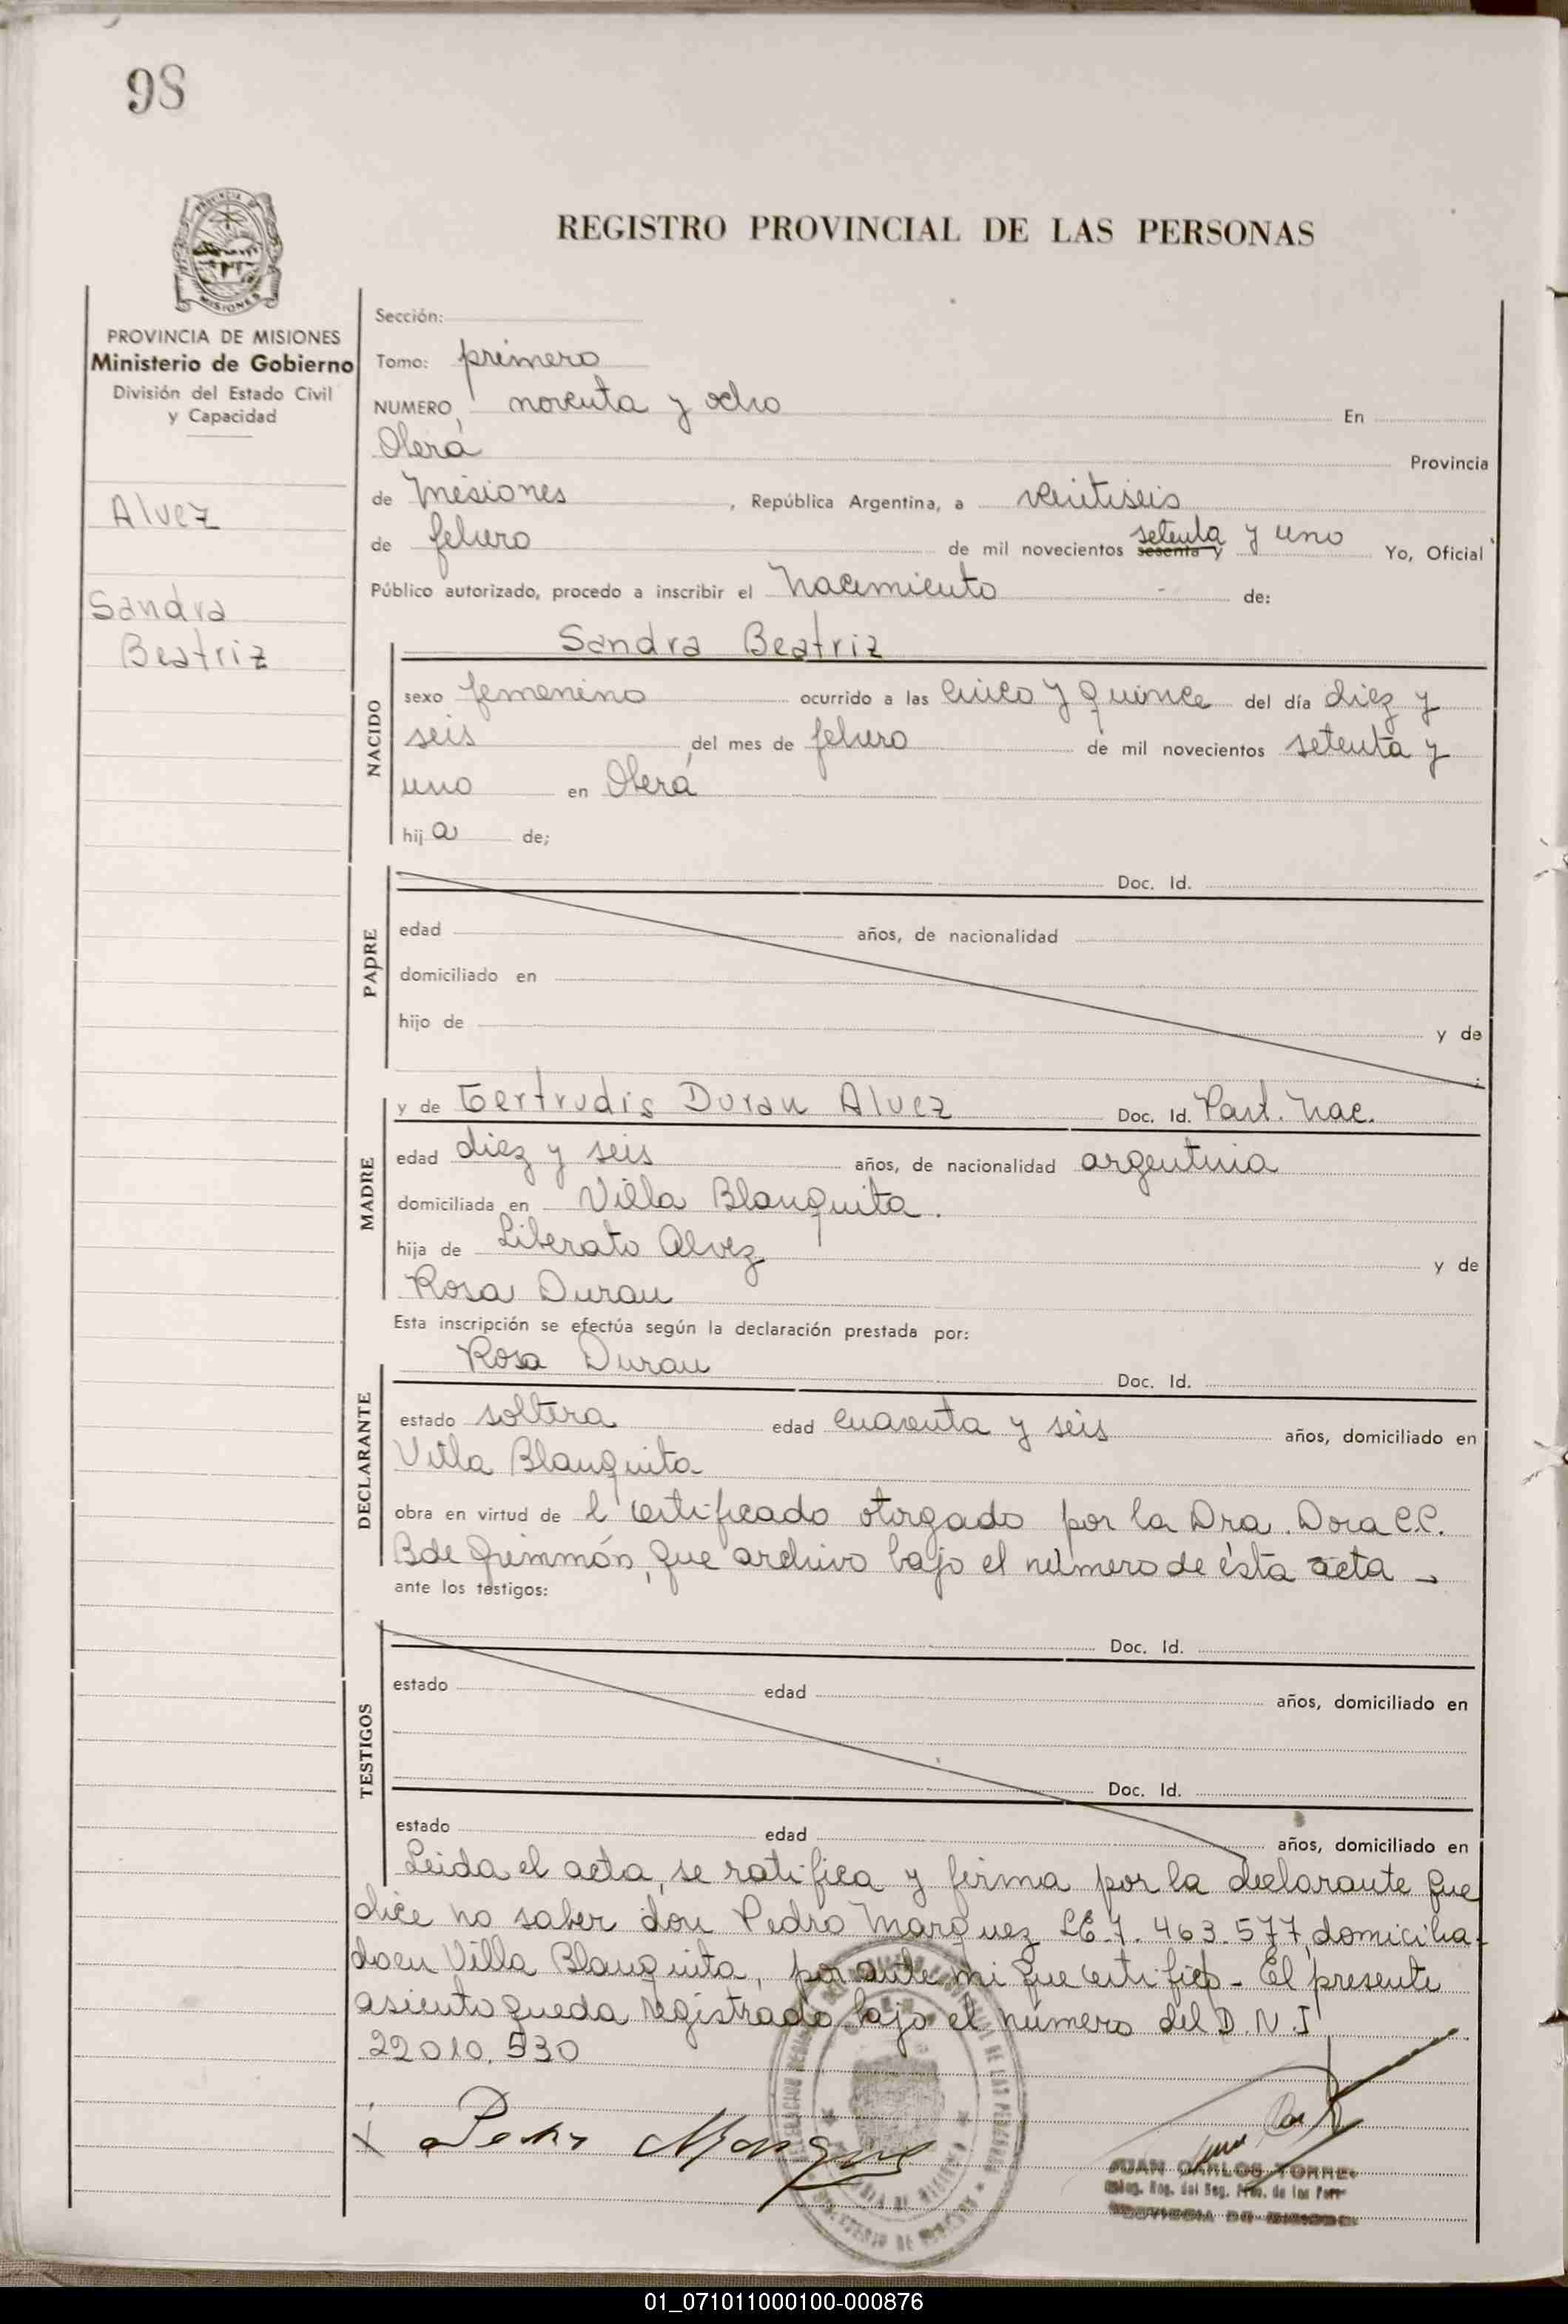 98
PROVINCIA
MISIONES
REGISTRO PROVINCIAL DE LAS PERSONAS
PROVINCIA DE MISIONES
Ministerio de Gobierno
División del Estado Civil
y Capacidad
Alvez
Sandra
Beatriz
Sección:
Tomo: primero
NUMERO noventa y ocho En
Oberá Provincia
de Misiones , República Argentina, a veintiseis
de febrero de mil novecientos sesenta y setenta y uno Yo, Oficial
Público autorizado, procedo a inscribir el Nacimiento - de:
Sandra Beatriz
NACIDO
sexo femenino ocurrido a las cinco y quince del día diez y
seis del mes de febrero de mil novecientos setenta y
uno en Oberá
hij a de;
PADRE
Doc. Id.
edad años, de nacionalidad
domiciliado en
hijo de y de
MADRE
y de Gertrudis Duran Alvez Doc. Id. Part. Nac.
edad diez y seis años, de nacionalidad argentina
domiciliada en Villa Blanquita.
hija de Liberato Alvez y de
Rosa Duran
Esta inscripción se efectúa según la declaración prestada por:
DECLARANTE
Rosa Duran Doc. Id.
estado soltera edad cuarenta y seis años, domiciliado en
Villa Blanquita
obra en virtud de l certificado otorgado por la Dra. Dora C.C.
B de Grimmón, que archivo bajo el número de ésta acta -
ante los testigos:
TESTIGOS
Doc. Id.
estado edad años, domiciliado en
Doc. Id.
estado edad años, domiciliado en
Leida el acta, se ratifica y firma por la declarante que
dice no saber don Pedro Marquez LE. 7. 463.577, domicilia-
do en Villa Blanquita, por ante mi que certifico - El presente
asiento queda registrado bajo el número del D.N.I
22010.530
x Pedro Marquez
JUAN CARLOS TORRE